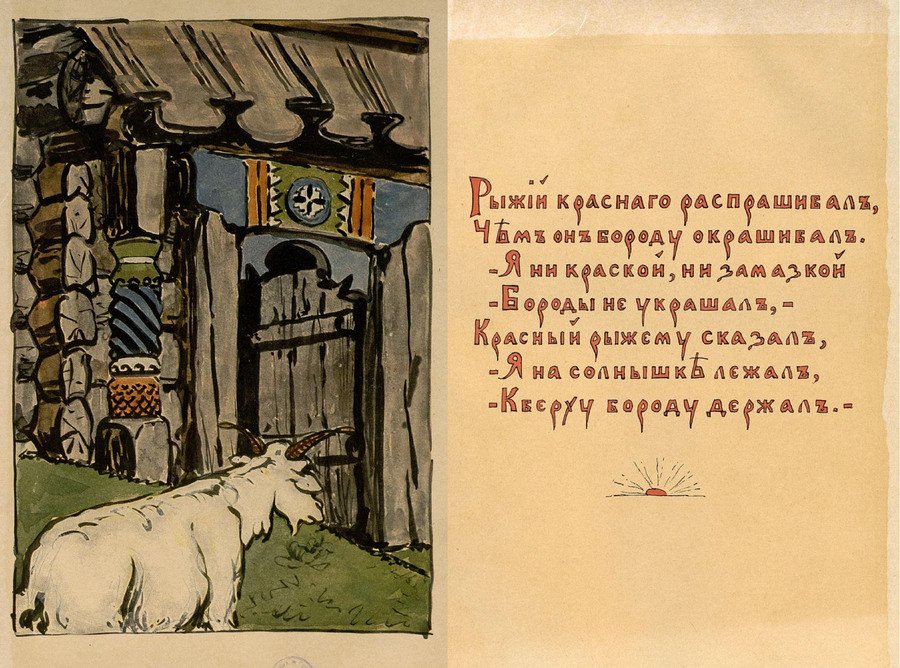 Рыжій краснаго распрашивалъ,
Чѣмъ онъ бороду окрашивалъ.
-Я ни краской, ни замазкой
-Бороды не украшалъ,-
Красный рыжему сказалъ,
-Я на солнышкѣ лежалъ,
-Кверху бороду держалъ.-